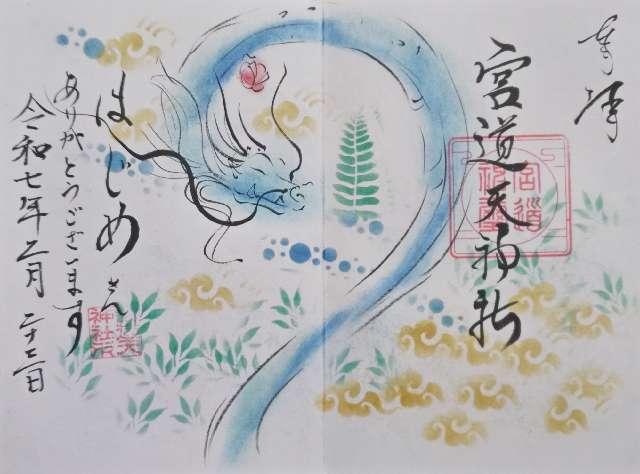 奉拝
宮道天神社
はじめさん
ありがとうございます
令和七年二月二十二日